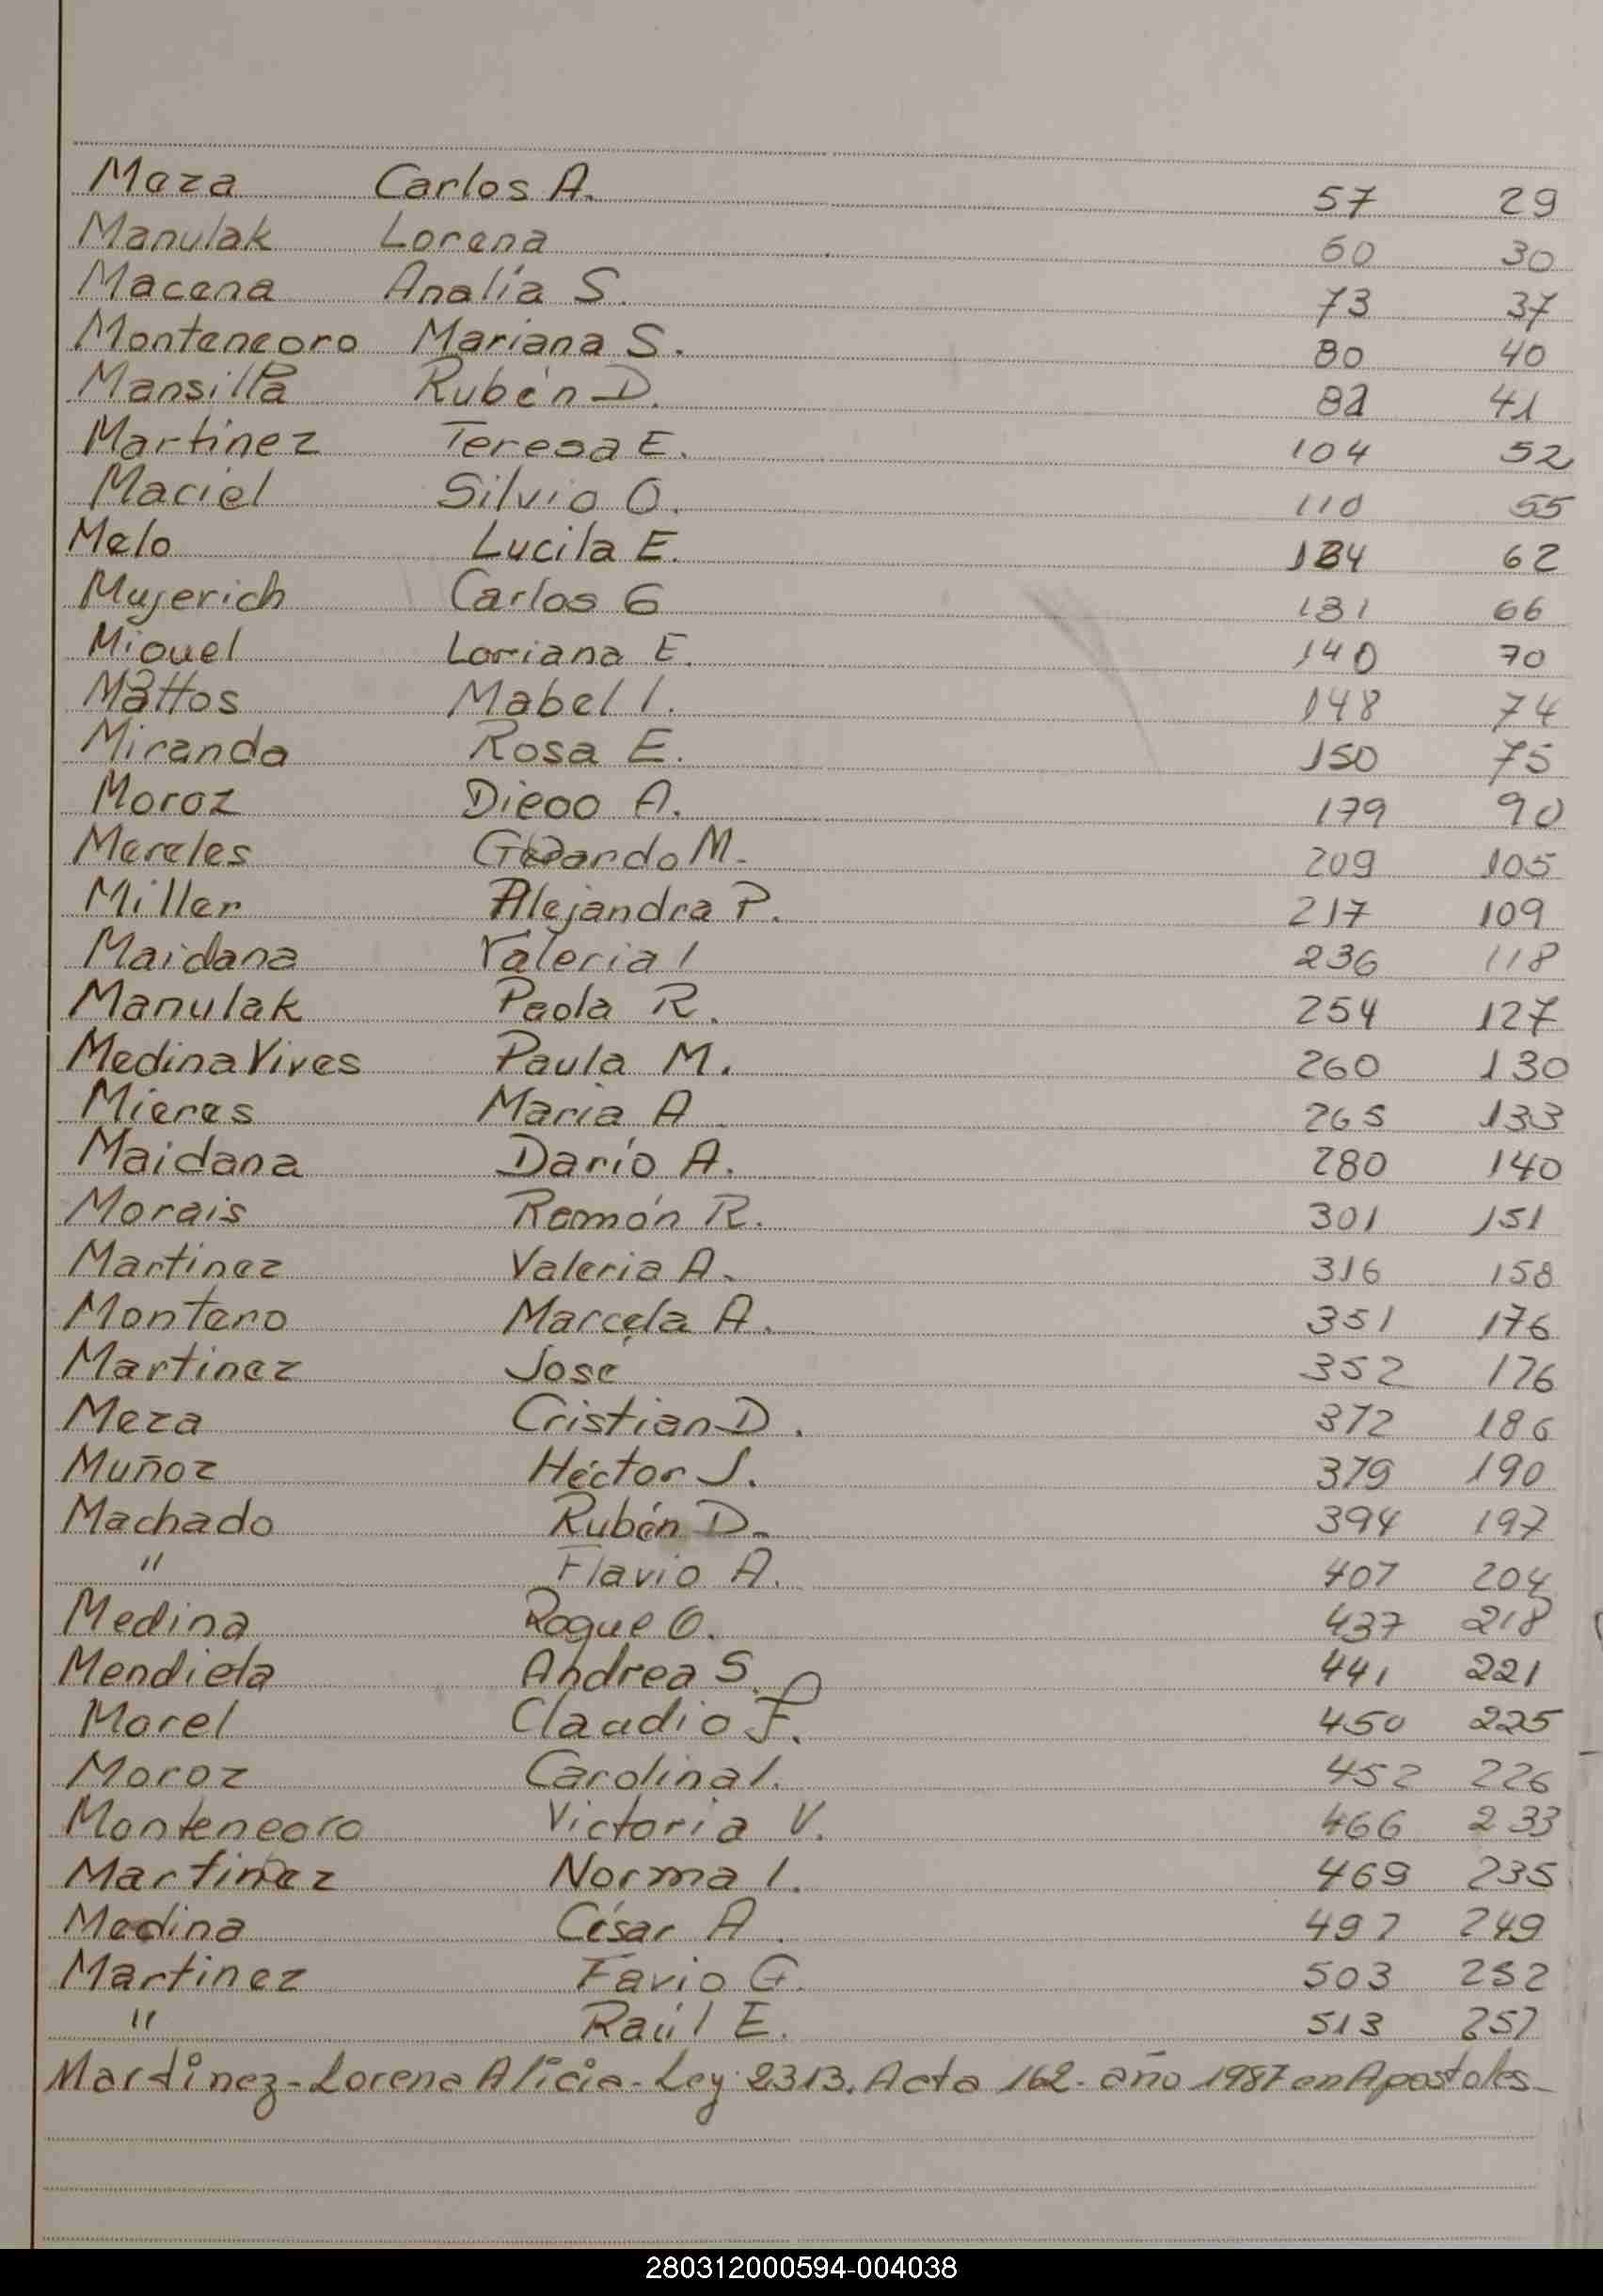 Meza Carlos A. 57 29
Manulak Lorena 60 30
Macena Analía S. 73 37
Montenegro Mariana S. 80 40
Mansilla Rubén D. 82 41
Martinez Teresa E. 104 52
Maciel Silvio O. 110 55
Melo Lucila E. 124 62
Mujerich Carlos G 131 66
Miguel Loriana E. 140 70
Mattos Mabel I. 148 74
Miranda Rosa E. 150 75
Moroz Diego A. 179 90
Mereles Gerardo M. 209 105
Miller Alejandra P. 217 109
Maidana Valeria I 236 118
Manulak Paola R. 254 127
Medina Vives Paula M. 260 130
Mieres Maria A 265 133
Maidana Darío A. 280 140
Morais Ramón R. 301 151
Martinez Valeria A. 316 158
Montero Marcela A. 351 176
Martinez Jose 352 176
Meza Cristian D. 372 186
Muñoz Héctor J. 379 190
Machado Rubén D. 394 197
" Flavio A. 407 204
Medina Roque O. 437 218
Mendieta Andrea S. 441 221
Morel Claudio F. 450 225
Moroz Carolina I. 452 226
Montenegro Victoria V. 466 233
Martinez Norma I. 469 235
Medina César A. 497 249
Martinez Favio G. 503 252
" Raúl E. 513 257
Mardinez-Lorena Alicia-Ley 2313. Acta 162- año 1987 en Apostoles-
280312000594-004038